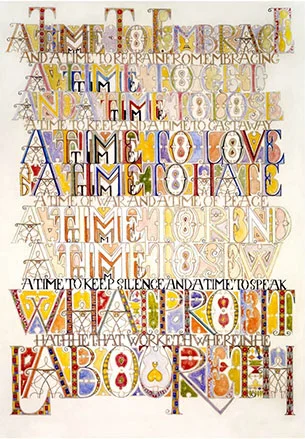 A TIME TO EMBRACE
AND A TIME TO REFRAIN FROM EMBRACING
A TIME TO GET
AND A TIME TO LOSE
A TIME TO KEEP AND A TIME TO CAST AWAY
A TIME TO LOVE
A TIME TO HATE
A TIME OF WAR AND A TIME OF PEACE
A TIME TO REND
A TIME TO SEW
A TIME TO KEEP SILENCE AND A TIME TO SPEAK
WHAT PROFIT
HATH HE THAT WORKETH WHEREIN HE
LABOURETH